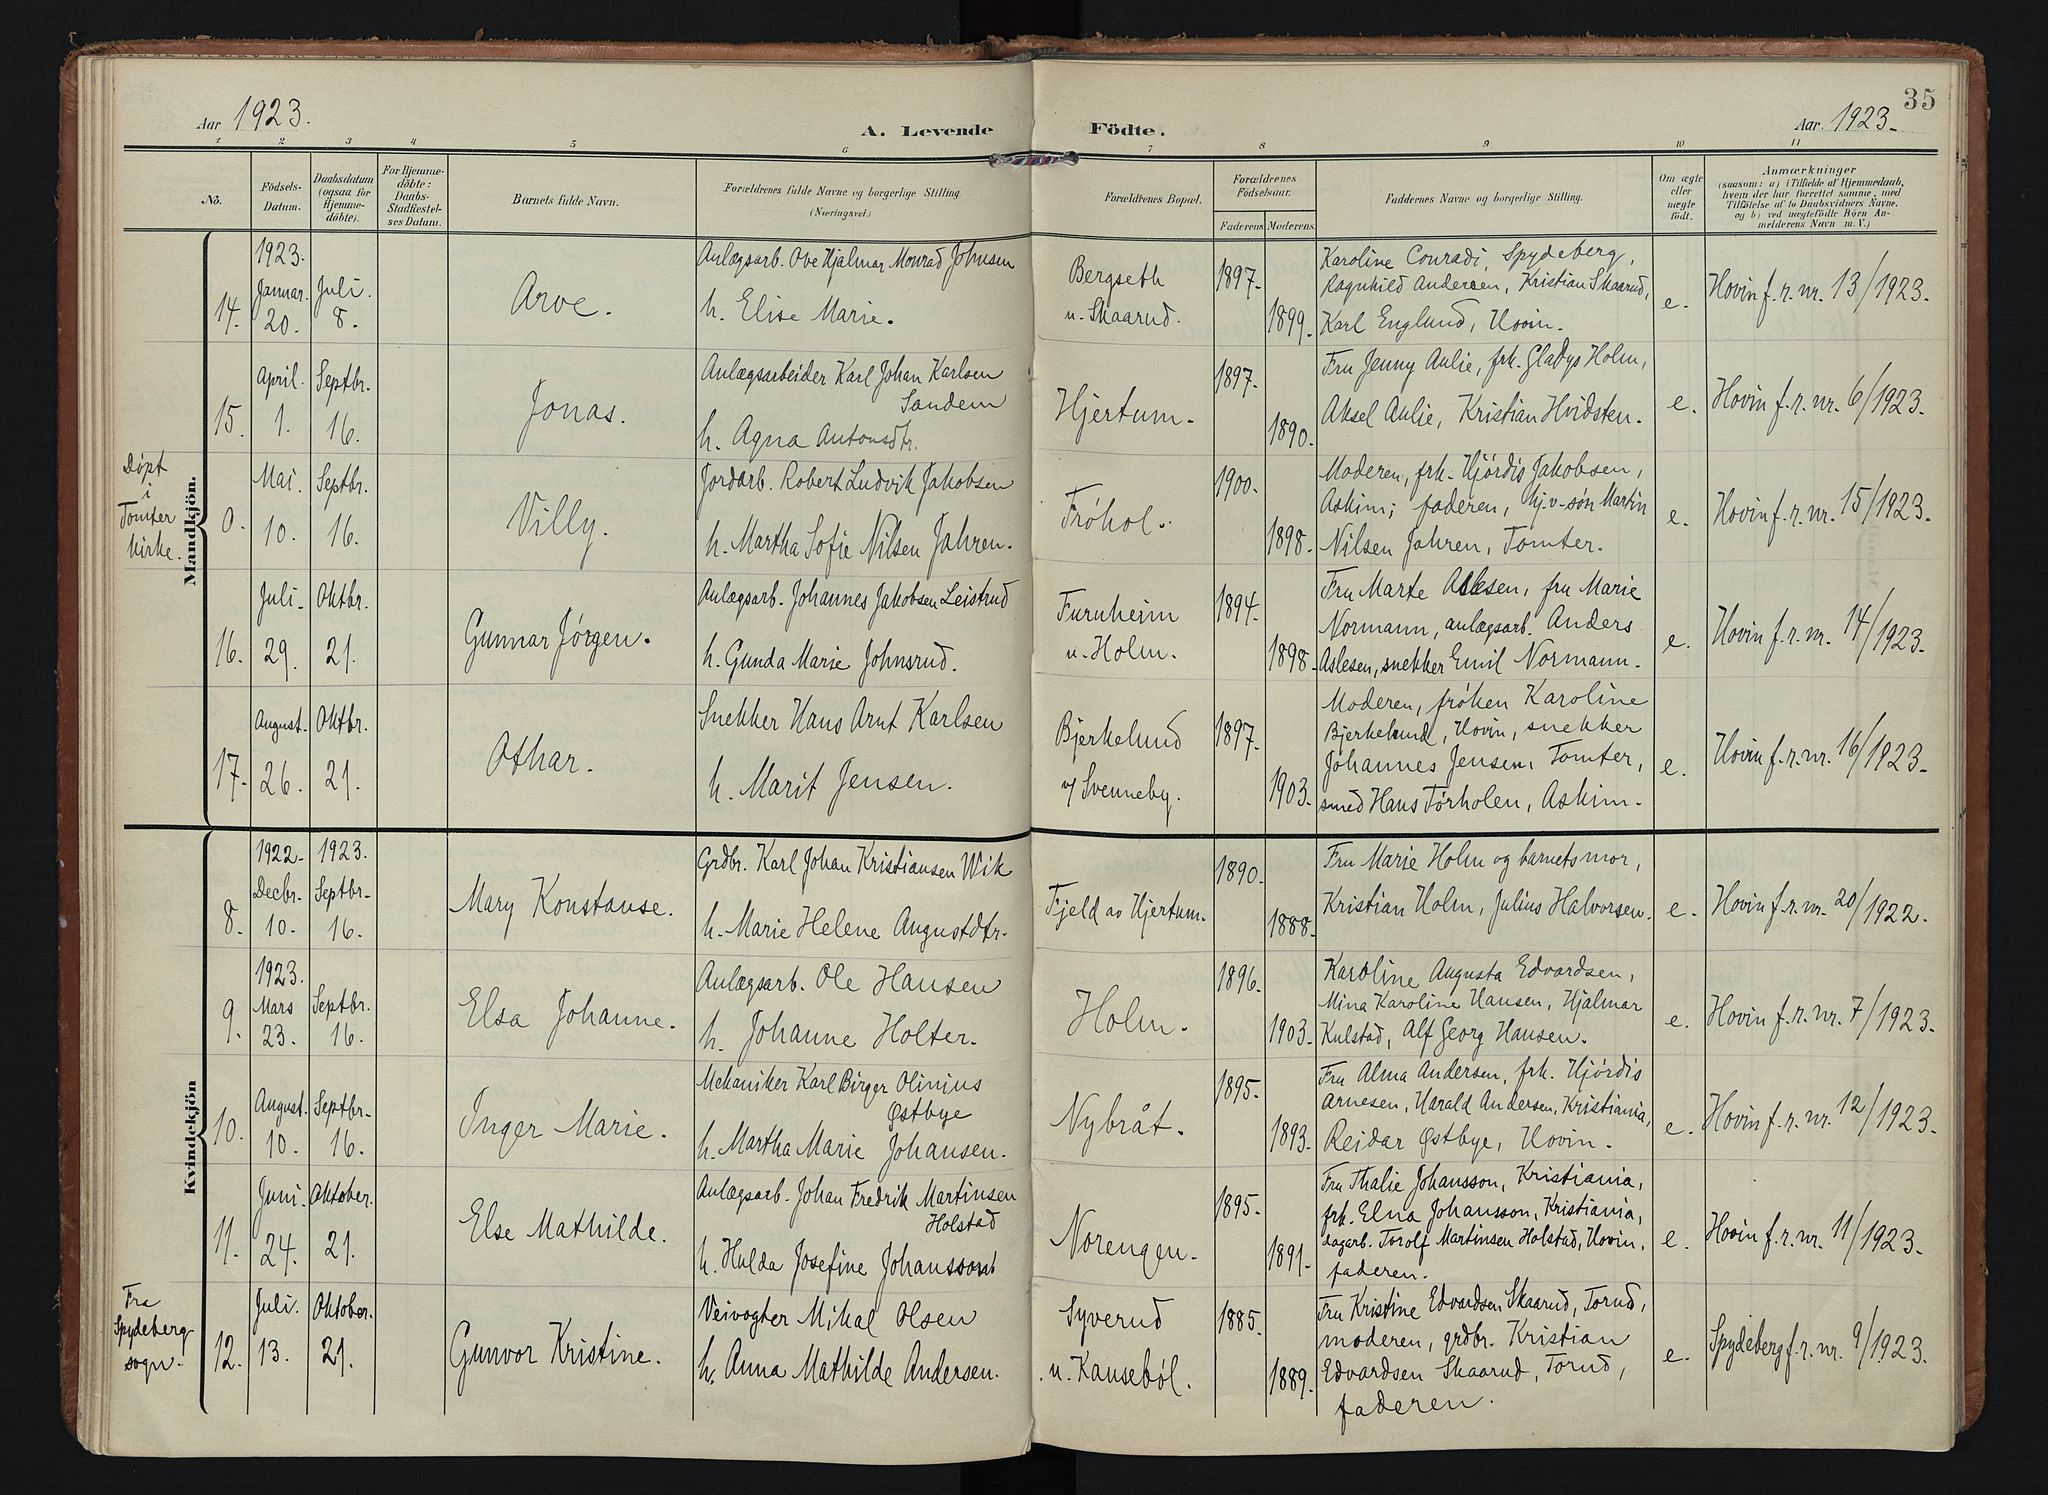 35
Aar 1923.
A. Levende Födte.
Aar 1923.
1 2 3 4 5 6 7 8 9 10 11
No.
Födsels-
Datum.
Daabsdatum
(ogsaa for
Hjemme-
döbte).
For Hjemme-
döbte:
Daabs-
Stadfæstel-
ses Datum.
Barnets fulde Navn.
Forældrenes fulde Navne og borgerlige Stilling.
(Næringsvei.)
Forældrenes Bopæl.
Forældrenes
Födselsaar.
Faderens Moderens.
Faddernes Navne og borgerlige Stilling.
Om ægte
eller
uægte
födt.
Anmærkninger
(saasom: a) i Tilfælde af Hjemmedaab,
hvem der har forrettet samme, med
Tilföielse af to Daabsvidners Navne.
og b) ved uægtefödte Börn An-
melderens Navn m. V.)
Mandkjön.
14.
1923.
Januar.
20.
Juli.
8.
Arve.
Anlægsarb. Ove Hjalmar Monrad Johnsen
h. Elise Marie.
Bergseth
u. Skaarud.
1897.
1899.
Karoline Conradi, Spydeberg,
Ragnhild Andersen, Kristian Skaarud,
Karl Englund, Hovin.
e.
Hovin f. r. nr. 13/1923.
15.
April.
1.
Septbr.
16.
Jonas.
Anlægsarbeider Karl Johan Karlsen
Sandem
h. Agna Antonsdtr.
Hjertum.
1897.
1890.
Fru Jenny Aulie, frk. Gladys Holm,
Aksel Aulie, Kristian Hvidsten.
e.
Hovin f. r. nr. 6/1923.
Døpt
i
Tomter
kirke.
0.
Mai.
10.
Septbr.
16.
Villy.
Jordarb. Robert Ludvik Jakobsen
h. Martha Sofie Nilsen Jahren.
Frøhol.
1900.
1898.
Moderen, frk. Hjørdis Jakobsen,
Askim; faderen, hj.v-søn Martin
Nilsen Jahren, Tomter.
e.
Hovin f. r. nr. 15/1923.
16.
Juli.
29.
Oktbr.
21.
Gunnar Jørgen.
Anlægsarb. Johannes Jakobsen Leistrud
h. Gunda Marie Johnsrud.
Furuheim
u. Holm.
1894.
1898.
Fru Marte Aslesen, fru Marie
Normann, anlægsarb. Anders
Aslesen, snekker Emil Normann.
e.
Hovin f. r. nr. 14/1923.
17.
August.
26.
Oktbr.
21.
Othar.
Snekker Hans Arnt Karlsen
h. Marit Jensen.
Bjerkelund
v/ Svenneby.
1897.
1903.
Moderen, frøken Karoline
Bjerkelund, Hovin, snekker
Johannes Jensen, Tomter,
smed Hans Tørholen, Askim.
e.
Hovin f. r. nr. 16/1923.
Kvindekjön
8.
1922.
Decbr.
10.
1923.
Septbr.
16.
Mary Konstanse.
Grdbr. Karl Johan Kristiansen Wik
h. Marie Helene Augustdtr.
Fjeld av Hjertum.
1890.
1888.
Fru Marie Holm og barnets mor,
Kristian Holm, Julius Halvorsen.
e.
Hovin f. r. nr. 20/1922.
9.
1923.
Mars
23.
Septbr.
16.
Elsa Johanne.
Anlægsarb. Ole Hansen
h. Johanne Holter.
Holm.
1896.
1903.
Karoline Augusta Edvardsen,
Mina Karoline Hansen, Hjalmar
Kulstad, Alf Georg Hansen.
e.
Hovin f. r. nr. 7/1923.
10.
August.
10.
Septbr.
16.
Inger Marie.
Mekaniker Karl Birger Olinius
Østbye
h. Martha Marie Johansen.
Nybråt.
1895.
1893.
Fru Alma Andersen, frk. Hjørdis
Arnesen, Harald Andersen, Kristiania,
Reidar Østbye, Hovin.
e.
Hovin f. r. nr. 12/1923.
11.
Juni.
24.
Oktober.
21.
Else Mathilde.
Anlægsarb. Johan Fredrik Martinsen
Holstad
h. Hulda Josefine Johansson
Norengen.
1895.
1891.
Fru Thalie Johansson, Kristiania,
frk. Elna Johansson, Kristiania,
dagarb. Torolf Martinsen Holstad, Hovin,
faderen.
e.
Hovin f. r. nr. 11/1923.
Fra
Spydeberg
sogn.
12.
Juli.
13.
Oktober.
21.
Gunvor Kristine.
Veivogter Mikal Olsen
h. Anna Mathilde Andersen.
Syverud
u. Kausebøl.
1885.
1889.
Fru Kristine Edvardsen Skaarud, Torud,
moderen, grdbr. Kristian
Edvardsen Skaarud, Torud,
faderen.
e.
Spydeberg f. r. nr. 9/1923.